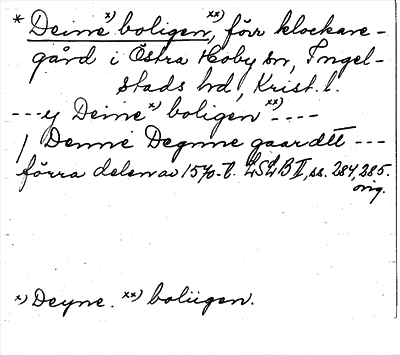 * Deine x) boligen xx), förr klockare-
gård i Östra Hoby sn, Ingel-
stads hd, Krist. l.
---y Deine x) boligen xx) ----
/ Denne Degnne gaardtt ---
förra delen av 15/0-t. LSLB II, ss. 284, 285.
orig.
x) Deyne. xx) boliigen.